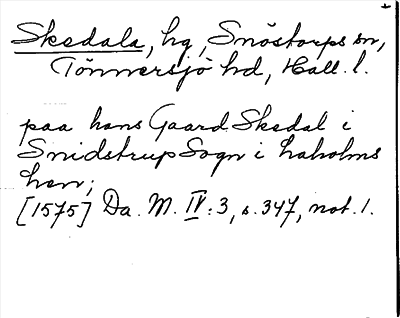 Skedala, hg, Snöstorps sn,
Tönnersjö hd, Hall. l.
paa hans Gaard Skedal i
Snidstrup Sogn i Laholms
hen;
[1575] Da. M. IV:3, s. 347, not. 1.